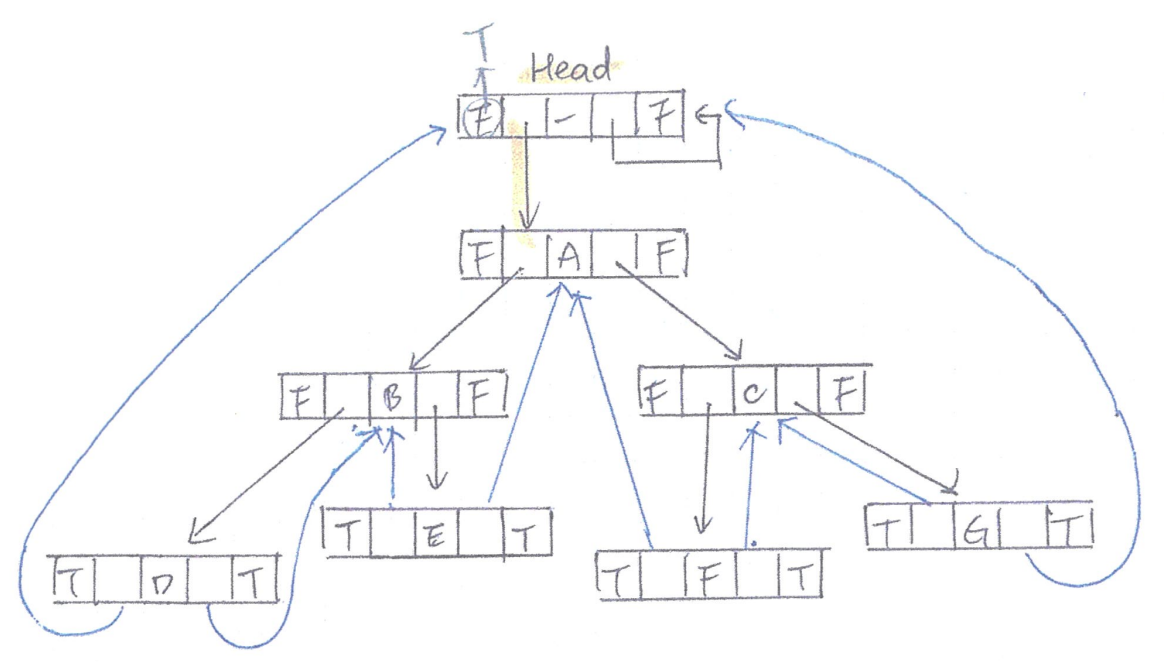 T
Head
F - F
F A F
F B F
F C F
T E T
T G T
T D T
T F T